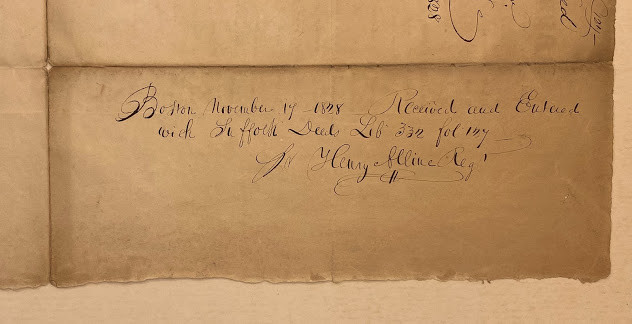 Boston November 17 1828 Received and Entered
with Suffolk Deeds Lib 332 fol 127
Pr Henry Alline Regr
1828